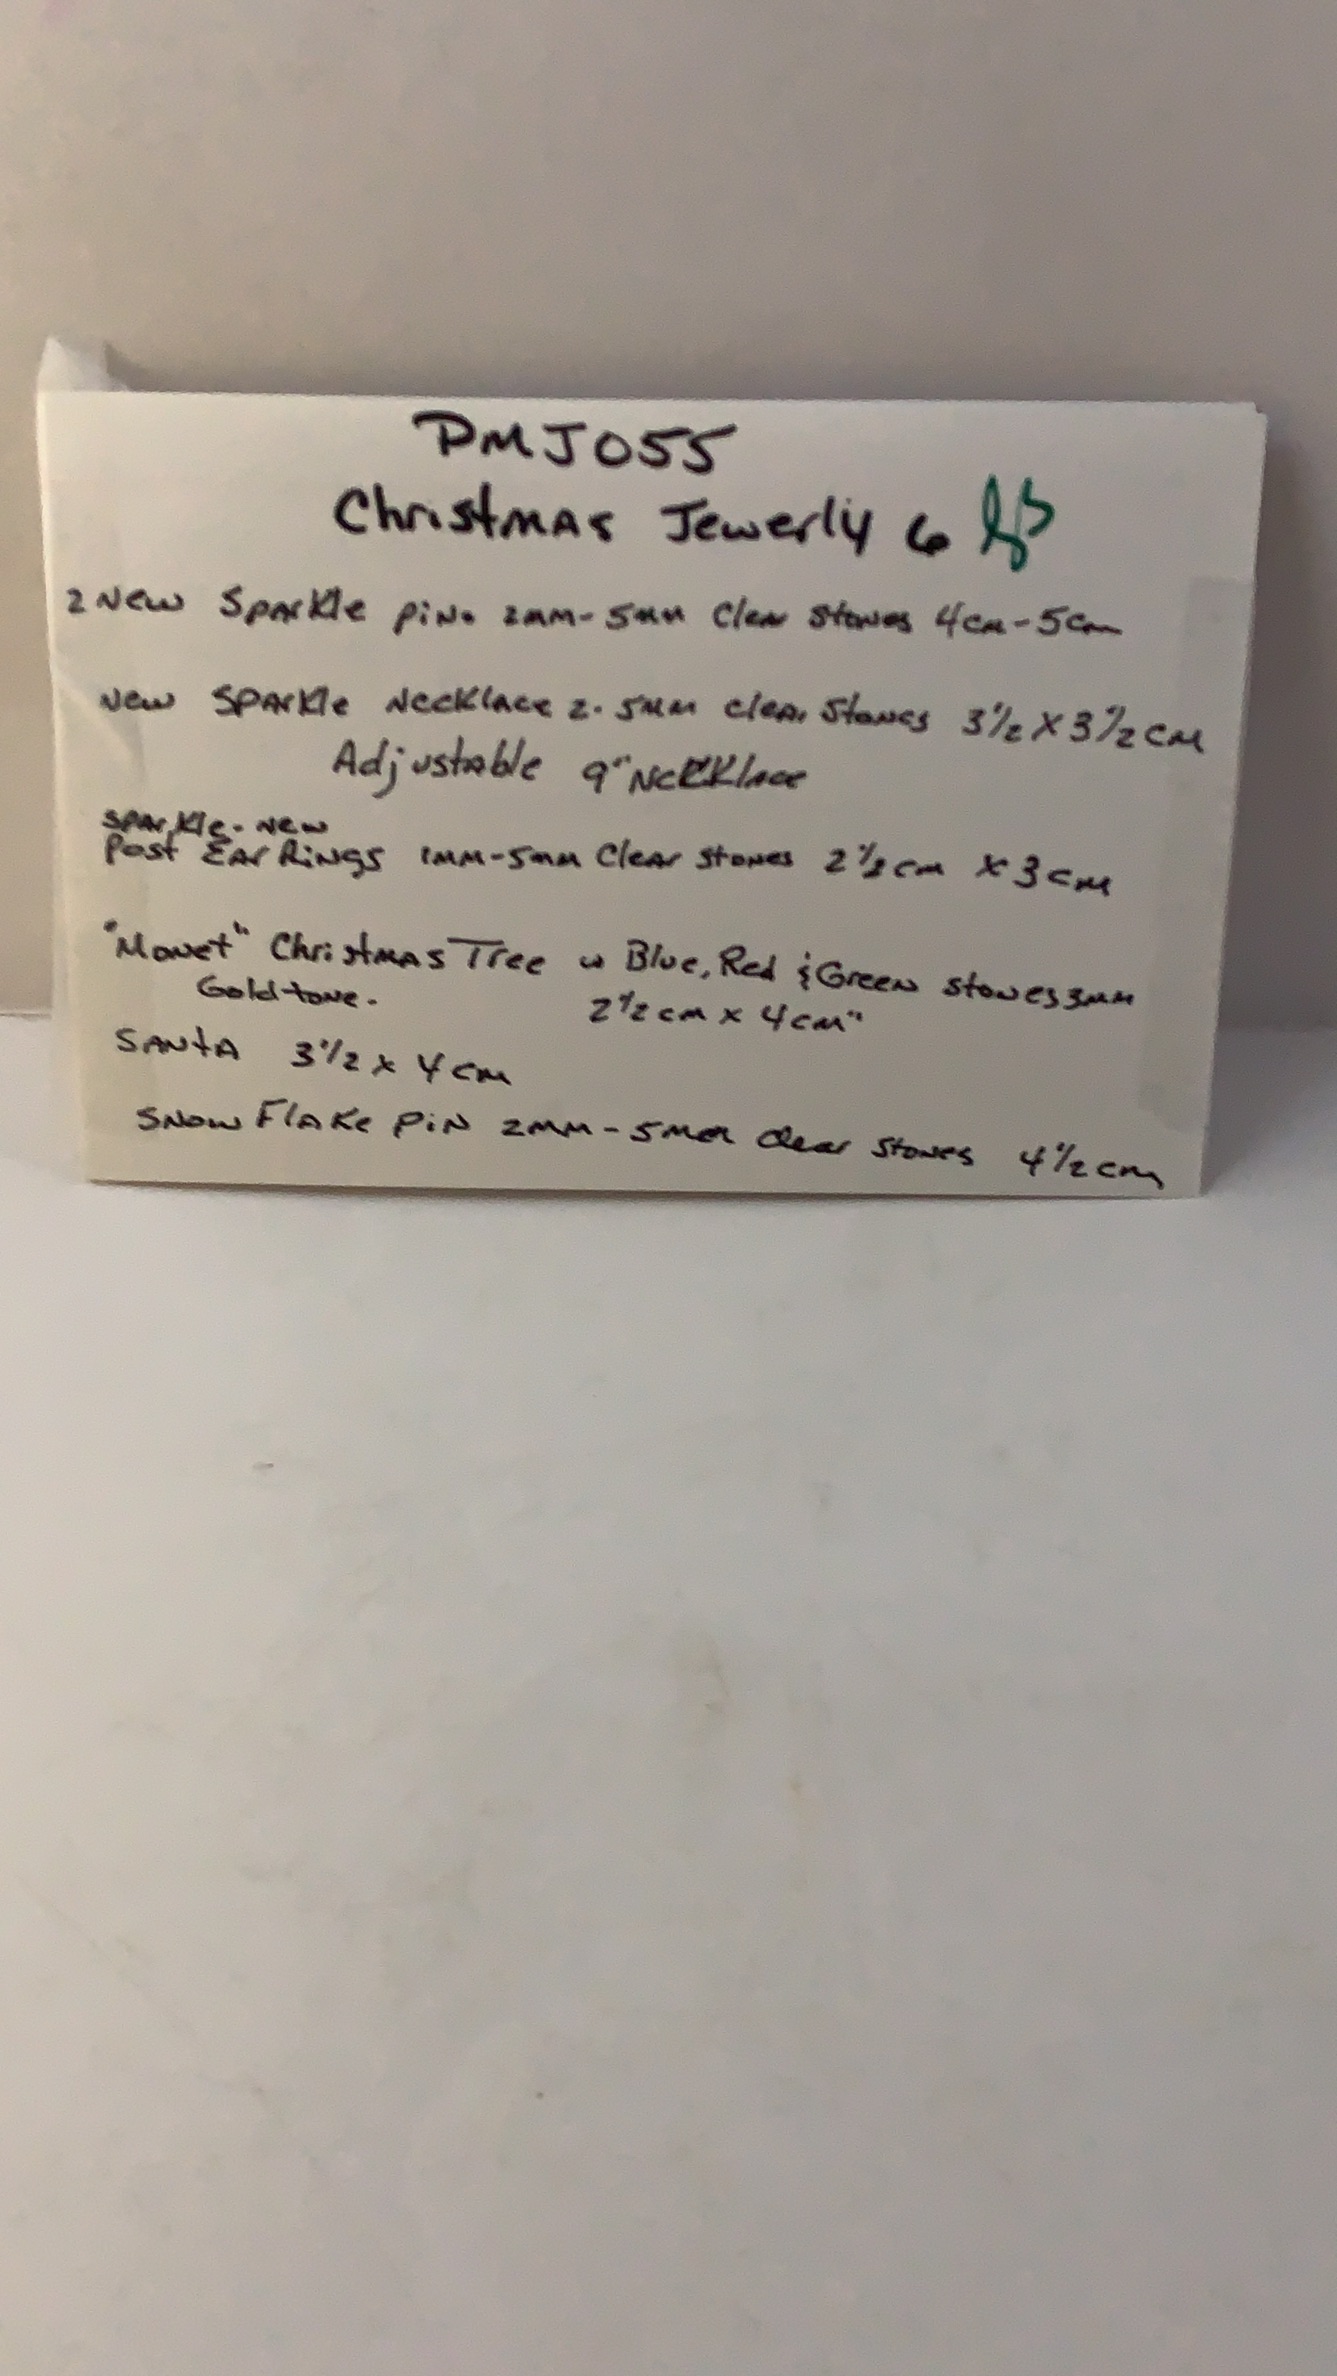 DMJ055
Christmas Jewerly 6
2 New Sparkle pin. 2mm-5mm Clear Stones 4cm-5cm
New Sparkle Necklace 2.5mm clear Stones 3 1/2 X 3 1/2 cm
Adjustable 9" Necklace
Sparkle. New
Post EarRings 1mm-5mm Clear Stones 2 1/2 cm x 3 cm
"Monet" Christmas Tree w Blue, Red & Green Stones 3mm
Goldtone. 2 1/2 cm x 4 cm"
Santa 3 1/2 x 4 cm
Snow Flake Pin 2mm-5mm Clear Stones 4 1/2 cm